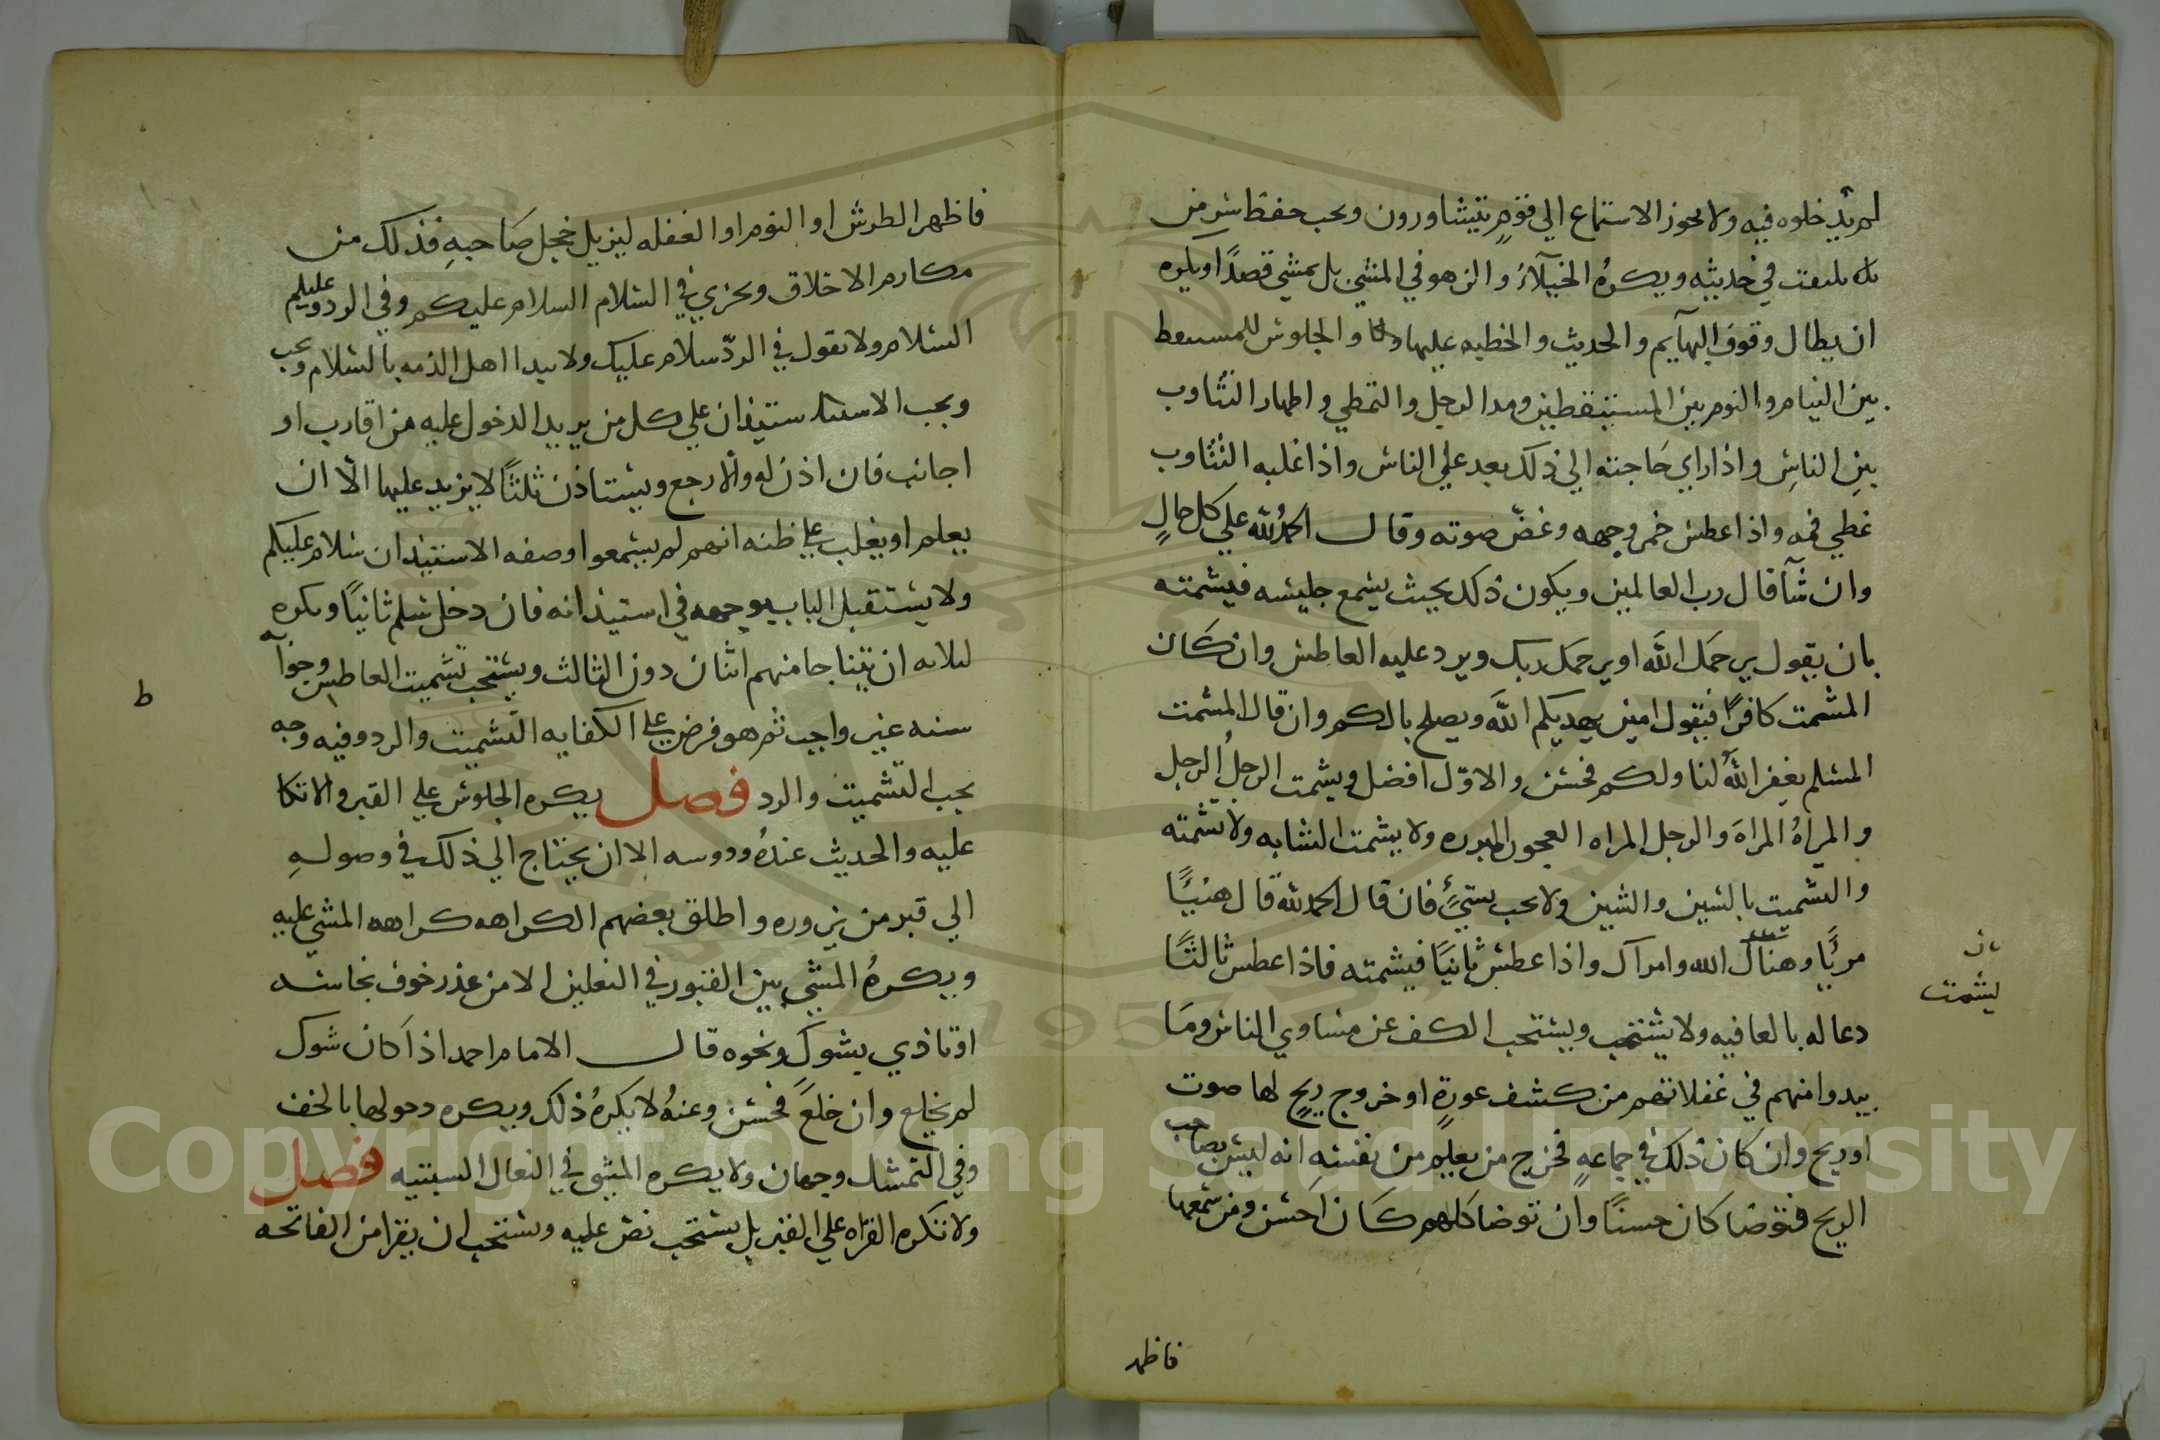 لم يدخلوه فيه ولا يجوز الاستماع الي قوم يتشاورون ويجب حفظ سر من
يلتفت في حديثه ويكره الخيلآء والزهو في المشي بل يمشي قصدًا ويكره
ان يطال وقوف البهآيم والحديث والخطبه عليها والجلوس للمستيقظ
بين النيام والنوم بين المستيقظين ومد الرجل والتمطي واظهار التثاوب
بين الناس واذا راي حاجته الي ذلك بعد علي الناس واذا غلبه التثاوب
غطي فمه واذا عطس خمر وجهه وغضّ صوته وقال الحمد لله علي كل حالٍ
وان شآ قال رب العالمين ويكون ذلك بحيث يسمع جليسه فيشمته
بان يقول يرحمك الله او يرحمك ربك ويرد عليه العاطس وان كان
المشمت كافرًا فيقول امين يهديكم الله ويصلح بالكم وان قال المشمت
المسلم يغفر الله لنا ولكم فحسن والاوّل افضل ويشمت الرجل الرجل
والمراةُ المراةَ والرجل المراه العجوز البرزه ولا يشمت الشابه ولا تشمته
والتشميت بالسين والشين ولا يجب بشيءٍ فان قال الحمد لله قال هنيئًا
مريًّا وهناك الله وامراك واذا عطس ثانيًا فيشمته فاذا عطس ثالثًا
دعا له بالعافيه ولا يستحب ويستحب الكف عن مساوي الناس وما
يبدوا منهم في غفلاتهم من كشف عورةٍ او خروج ريحٍ لها صوت
او ريح وان كان ذلك في جماعهٍ فخرج من يعلم من نفسه انه ليس بصاحب
الريح فتوضا كان حسنًا وان توضا كلهم كان احسن ومن سمعها
يشمت
فاظهر
فاظهر الطرش او النوم او الغفله ليزيل خجل صاحبهِ فذلك من
مكارم الاخلاق ويجزي في السلام السلام عليكم وفي الرد وعليكم
السلام ولا يقول في الردّ سلام عليك ولا يبدا اهل الذمه بالسلام ويجب
ويجب الاستئذان علي كل من يريد الدخول عليه من اقارب او
اجانب فان اذن له والا رجع ويستاذن ثلثًا لا يزيد عليها الّا ان
يعلم او يغلب علي ظنه انهم لم يسمعوا وصفه الاستيذان سلام عليكم
ولا يستقبل الباب بوجهه في استيذانه فان دخل سلم ثانيًا ويكره
لثلاثه ان يتناجا منهم اثنان دون الثالث ويستحب تشميت العاطس وجوابه
سنه غير واجب ثم هو فرض علي الكفايه التشميت والرد وفيه وجه
يجب التشميت والرد فصل يكره الجلوس علي القبر والاتكا
عليه والحديث عندهُ ودوسه الا ان يحتاج الي ذلك في وصولهِ
الي قبر من يزوره واطلق بعضهم الكراهه كراهه المشي عليه
ويكرهُ المشي بين القبور في النعلين الا من عذر خوف نجاسه
او تاذي بشوك ونحوه قال الامام احمد اذا كان شوك
لم يخلع وان خلعَ فحسن وعنهُ لا يكرهُ ذلك ويكره دخولها بالخف
وفي التمشك وجهان ولا يكره المشي في النعال السبتيه فصل
ولا تكره القراه علي القبر بل يستحب نص عليه ويستحب ان يقرا من الفاتحه
ط
Copyright © King Saud University
1957